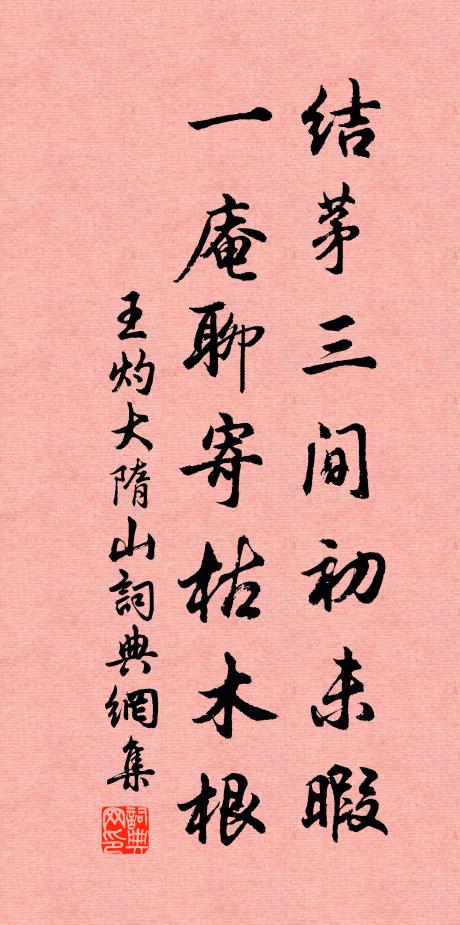 結茅三间初未暇
一庵聊寄枯木根
王灼大隋山詞典網集
詞典网印